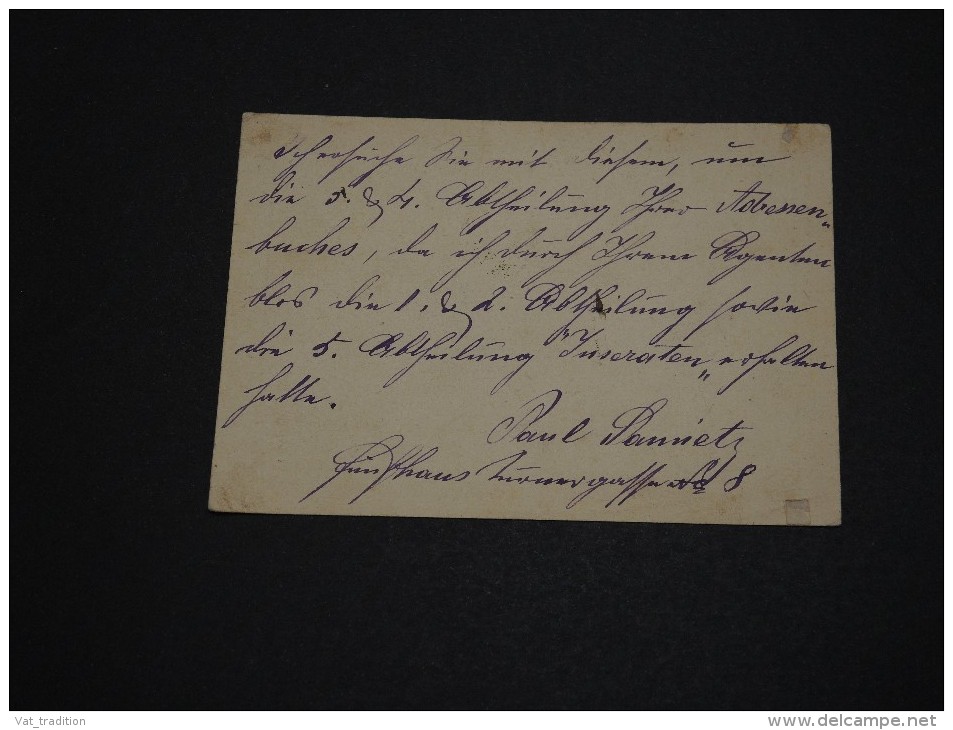 Ich ersuche Sie mit diesem, um
die 3. & 4. Abtheilung Ihres Adressen„
buches, da ich durch Ihrem Agenten
blos die 1. & 2. Abtheilung sowie
die 5. Abtheilung Inseraten„ erhalten
hatte.
Paul
Fünfhaus Turnergasse No 8
Vat_tradition
www.delcampe.net